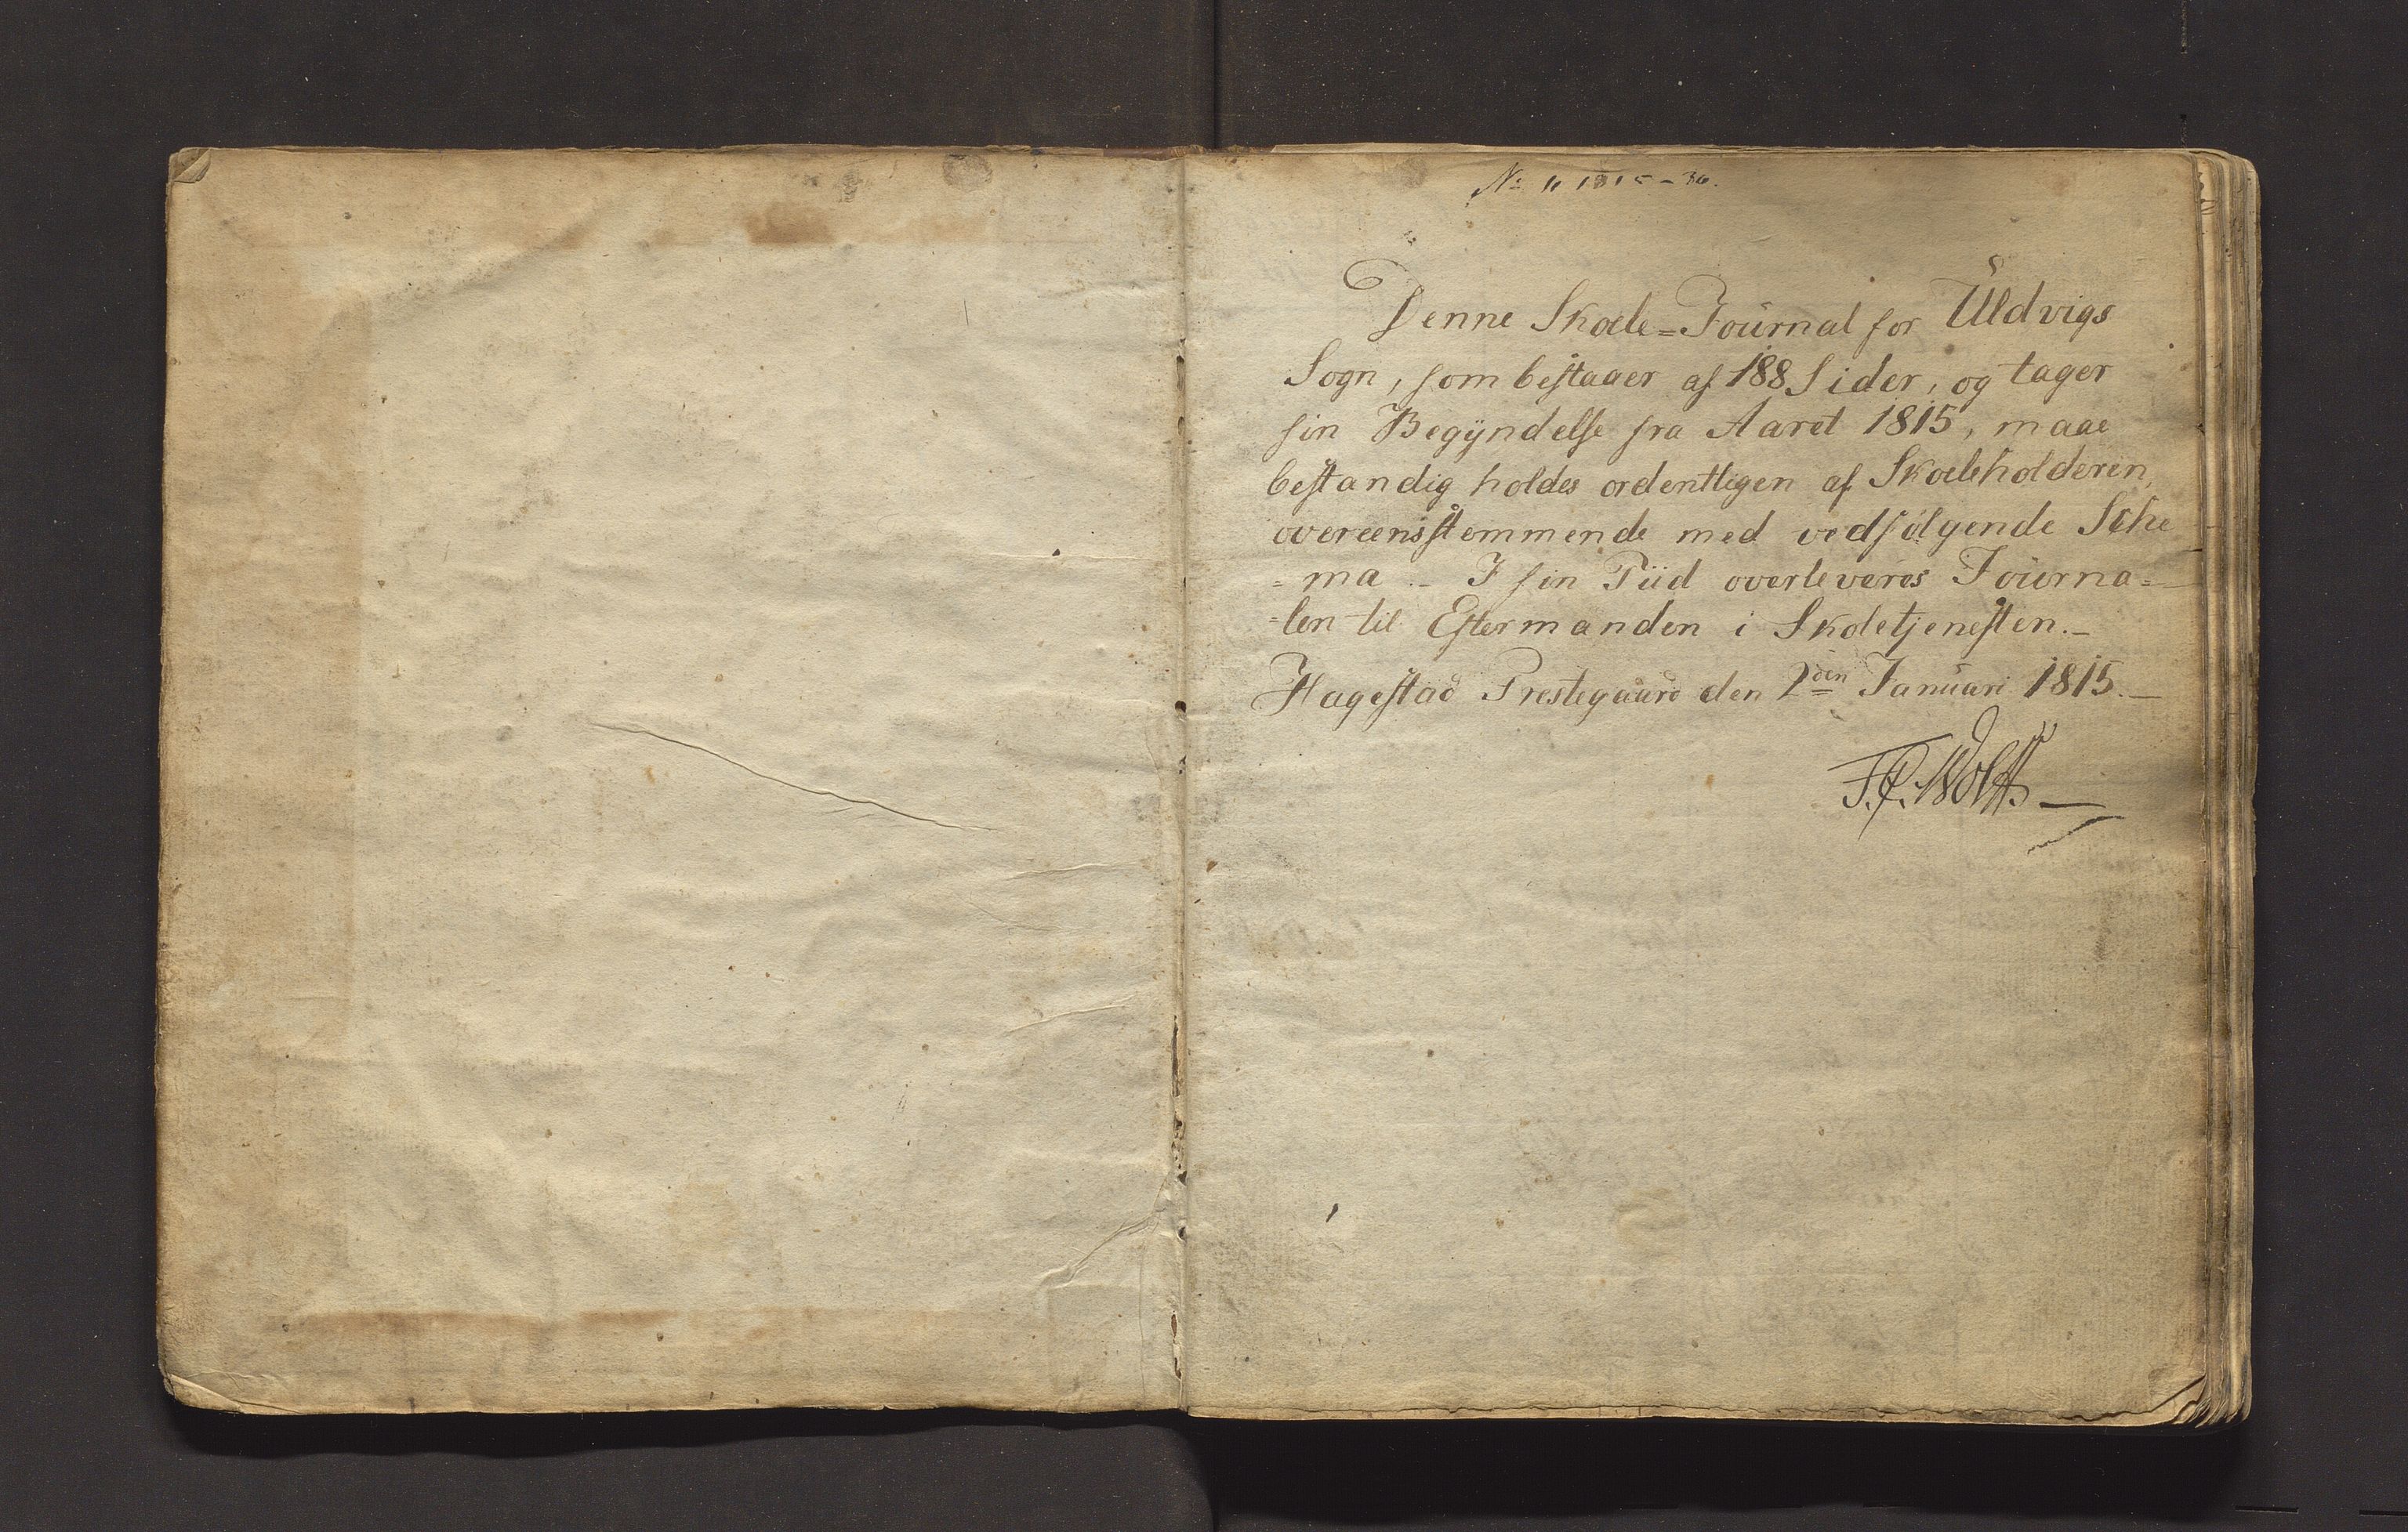 No 1, 1815-36.
Denne Skoele=Journal for Uldvigs
Sogn, som bestaaer af 188 Sider, og tager
sin Begÿndelse fra Aaret 1815, maae
bestandig holdes ordentligen af Skoeleholderen,
overeensstemmende med vedfølgende Sche
=ma. - I sin Tiid overleveres Journa=
=len til Eftermanden i Skoletjenesten. -
Hagestad Prestegaard den 2den Januari 1815. -
Wolff. -